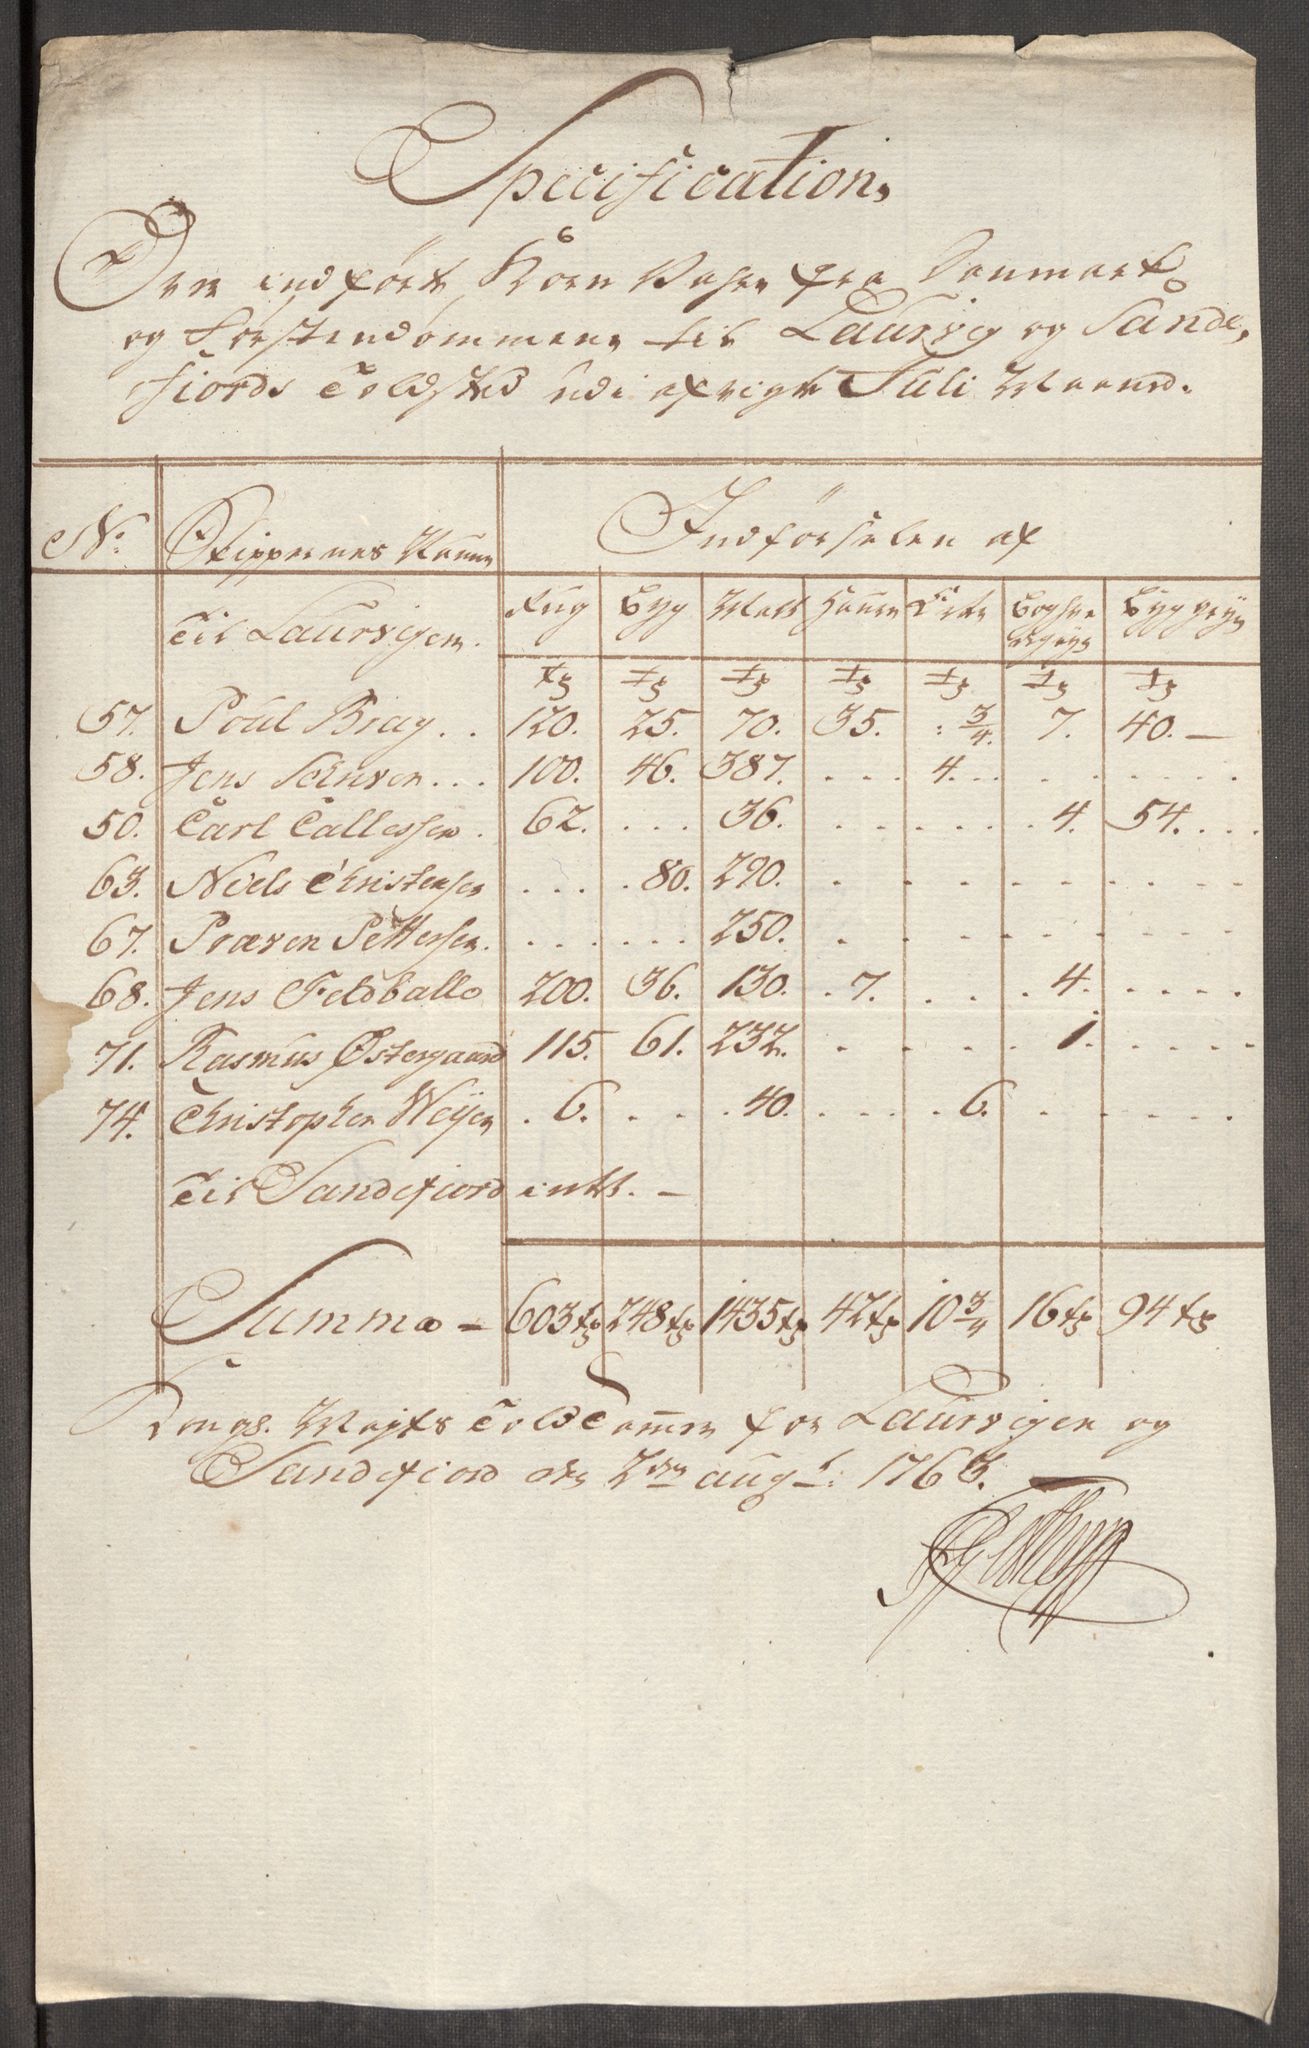 Specification,
Over indført Korn Vahre fra Danmark
og Førstendømmene til Laurvig og Sande,
fiords Toldsted udi afvigte Juli Maaned.
No. Skippernes Nafne Indførselen af
Til Laurvigen. Rug Byg Malt Hafre Erter Boghve Byggryn
gryn
tr tr tr tr tr tr tr
57. Poul Bray . . 120. 25. 70. 35. : 3/4. 7. 40. —
58. Jens Sensen . . . 100. 46. 387. . . . 4. . . . . . . . .
50. Carl Callessen . 62. . . . 36. . . . . . . 4. 54. . . .
63. Niels Christensen . . . . 80. 290. . . . . . . . . .
67. Praven Pettersen. . . . . . . 250. . . . . . . . . .
68. Jens Feldballe 200. 36. 130. . 7. . . . 4. . . . .
71. Rasmus Østergaard 115. 61. 232. . . . . . 1. . . . . .
74. Christopher Weyer . 6. . . . 40. . . . . 6. . . . . .
Til Sandefiord intet. —
Summa — 603 tr 248 tr 1435 tr 42 tr 10 3/4 16 tr 94 tr
Kongl. Mayts Told Cammer for Laurvigen og
Sandefiord den 2den augst: 1763.